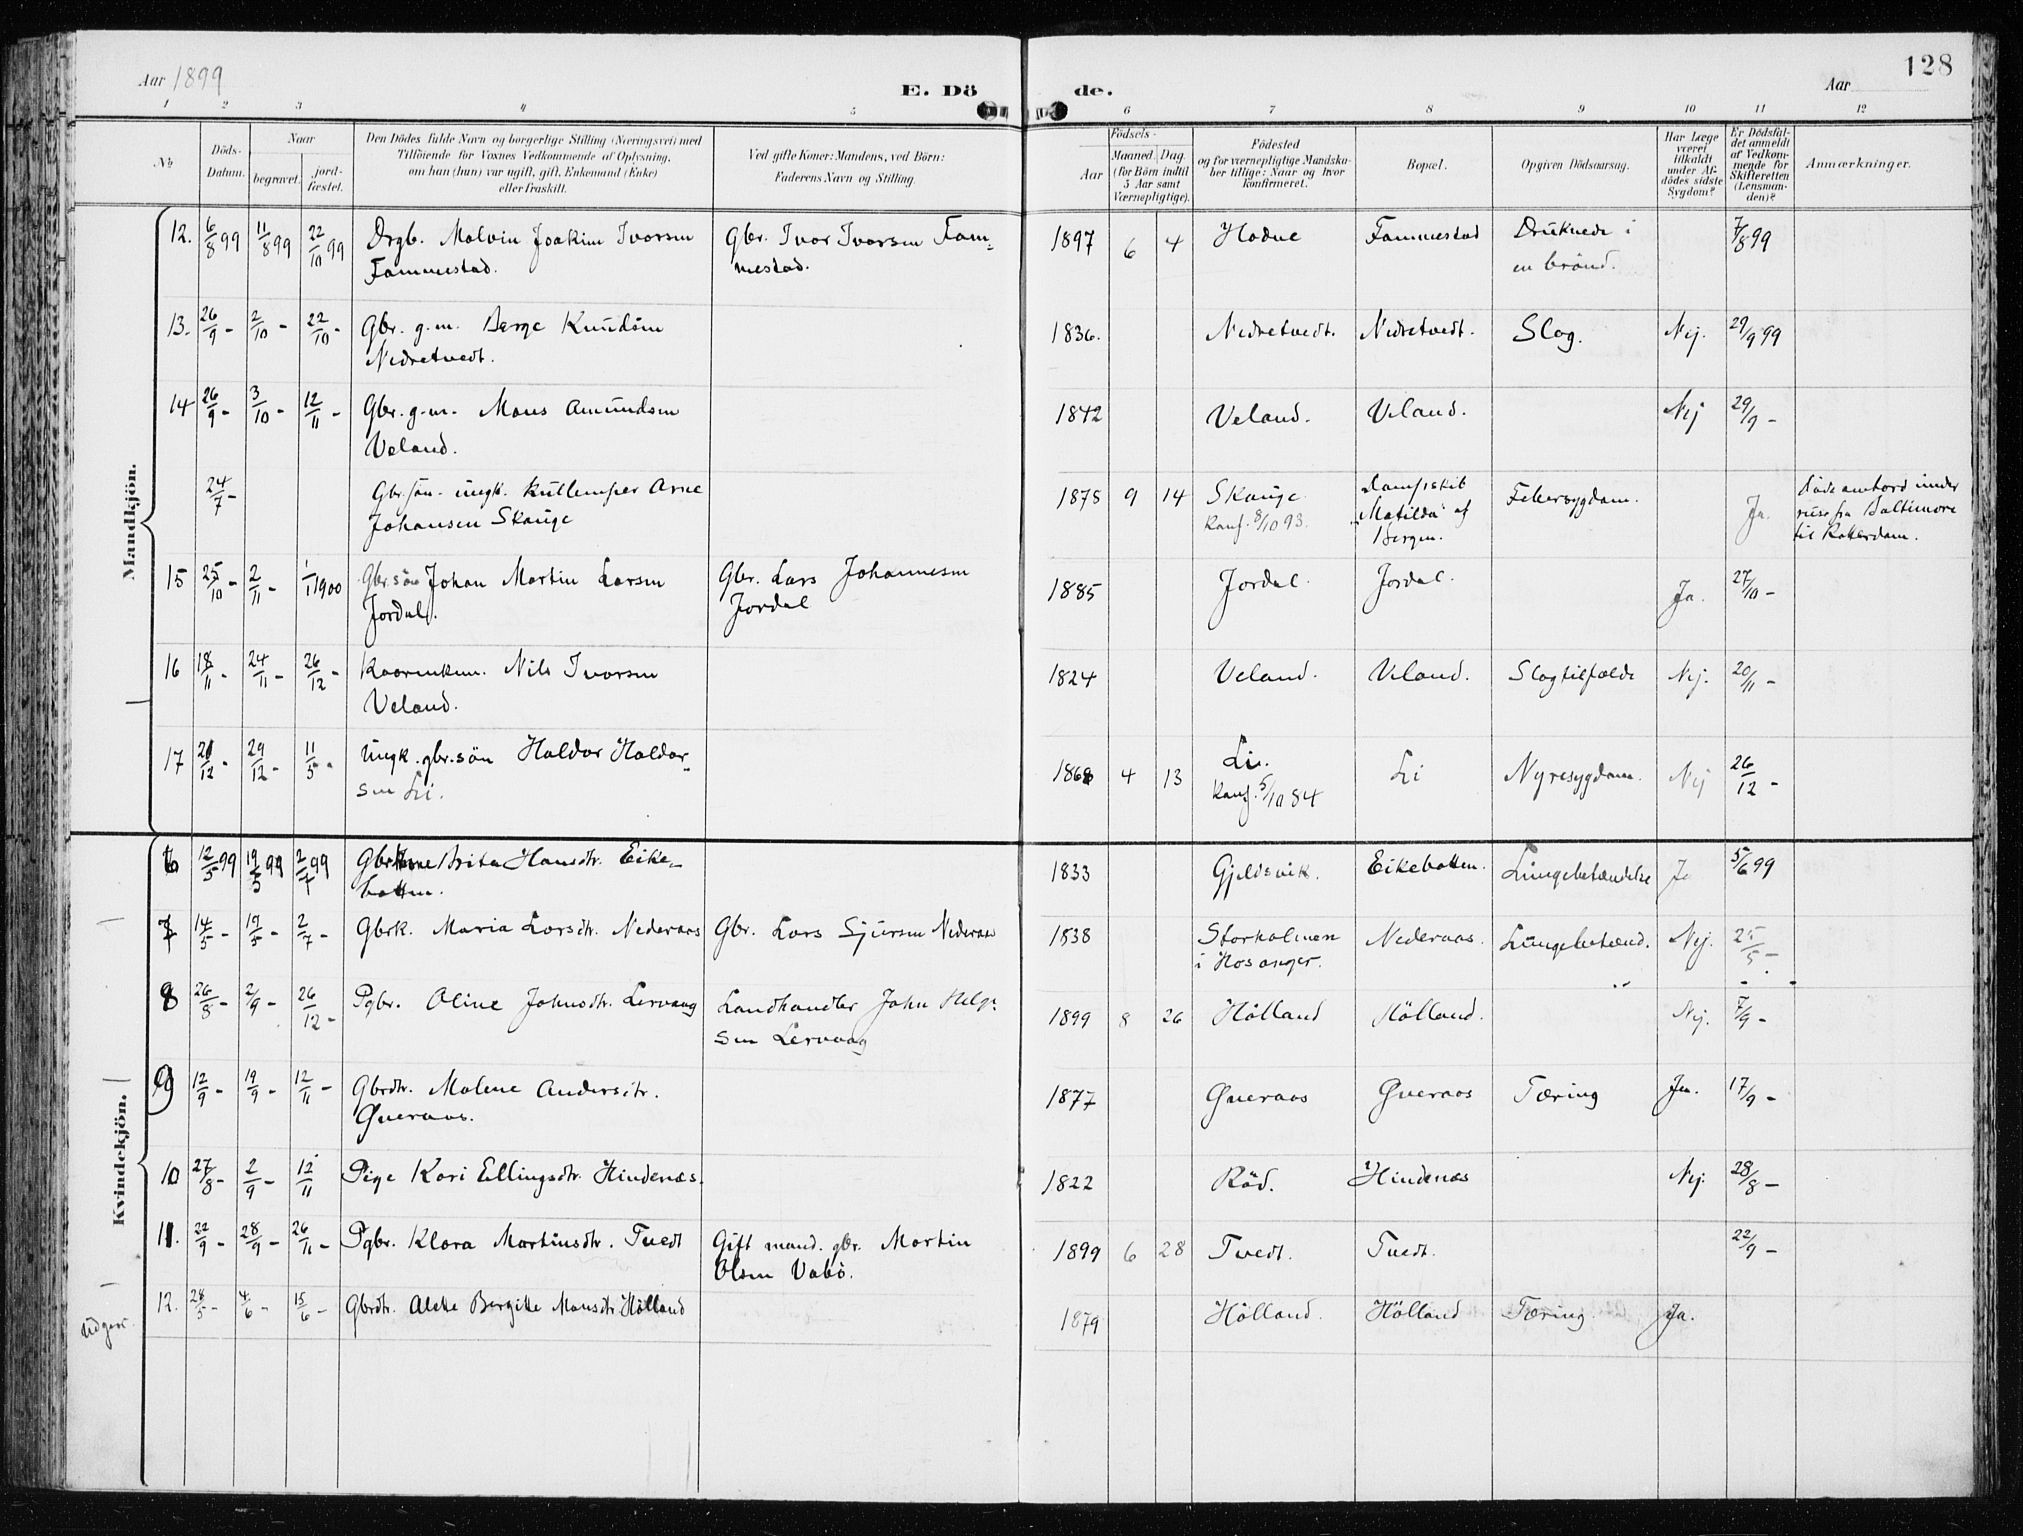 128
Aar 1899
E. Dö
de.
Aar
1 2 3 4 5 6 7 8 9 10 11 12
No
Döds-
Datum.
Naar
begravet.
jord-
fæstet.
Den Dödes fulde Navn og borgerlige Stilling (Næringsvei) med
Tilföiende for Voxnes Vedkommende af Oplysning,
om han (hun) var ugift, gift, Enkemand (Enke)
eller fraskilt.
Ved gifte Koner: Mandens, ved Börn:
Faderens Navn og Stilling.
Födsels-
Aar
Maaned. Dag.
(for Börn indtil
5 Aar samt
Værnepligtige).
Födested
og for værnepligtige Mandska-
ber tillige: Naar og hvor
konfirmeret.
Bopæl.
Opgiven Dödsaarsag.
Har Læge
været
tilkaldt
under Af-
dödes sidste
Sygdom?
Er Dödsfal-
det anmeldt
af Vedkom-
mende for
Skifteretten
(Lensman-
den)?
Anmærkninger.
Mandkjön.
12. 6/8 99 11/8 99 22/10 99 Drgb. Malvin Joakim Ivarsen Gbr. Ivar Ivarsen Fam- 1897 6 4 Hodne Fammestad Druknede i 7/8 99
Fammestad. mestad. en brönd.
13. 26/9 - 2/10 - 22/10 - Gbr. g.m. Berge Knudsen 1836. Nedretvedt. Nedretvedt. Slag. Nej. 29/9 99
Nedretvedt.
14 26/9 - 3/10 - 12/11 - Gbr. g.m. Mons Amundsen 1842 Veland. Veland. Nej 29/9 -
Veland.
24/7 - Gbr.sön. ungk. Kullemper Arne 1878 9 14 Skauge Dampskib Febersygdom. Ja. Döde ombord under
Johansen Skauge Konf. 8/10 93. "Matilda" af reise fra Baltimore
Bergen. til Rotterdam.
15 25/10 - 2/11 - 1/1 1900 Gbr.sön Johan Martin Larsen Gbr. Lars Johannesen 1885 Jordal. Jordal. Ja. 27/10 -
Jordal. Jordal
16 18/11 - 24/11 - 26/12 - Kaarenkm. Nils Ivarsen 1824 Veland. Veland. Slagtilfælde Nej. 20/11 -
Veland.
17 21/12 - 29/12 - 11/5 - Ungk. gbr.sön Haldor Haldor- 1868 4 13 Li. Li Nyresygdom. Nej 26/12 -
sen Li. Konf. 5/10 84
Kvindekjön.
6 12/5 99 19/5 99 2/7 99 Brita Hansdtr. Eike- 1833 Gjeldsvik. Eikebotten. Lungebetændelse Ja 5/6 99
botten.
7 14/5 - 19/5 - 2/7 - Gbrk. Maria Larsdtr. Nederaas Gbr. Lars Sjursen Nederaas 1838 Storholmen Nederaas. Lungebetænd. Nej. 25/5 -
i Hosanger.
8 26/8 - 2/9 - 26/12 - Pgbr. Oline Johnsdtr. Lervaag Landhandler John Helge- 1899 8 26 Hölland Hölland. Nej. 7/9 -
sen Lervaag
9 12/9 - 19/9 - 12/11 - Gbrdtr. Malene Andersdtr. 1877 Gveraas Gveraas Tæring Ja. 17/9 -
Gveraas.
10 27/8 - 2/9 - 12/11 Pige Kari Ellingsdtr. Hindenæs. 1822 Röd. Hindenæs Nej. 28/8 -
11. 22/9 - 28/9 - 26/11 - Pgbr. Klara Martinsdtr. Tvedt Gift mand. gbr. Martin 1899 6 28 Tvedt. Tvedt. 22/9 -
Olsen Vabö.
12. 28/5 - 4/6 - 15/6 - Gbrdtr. Alette Bergitte Monsdtr. Hölland 1879 Hölland. Hölland Tæring. Ja.